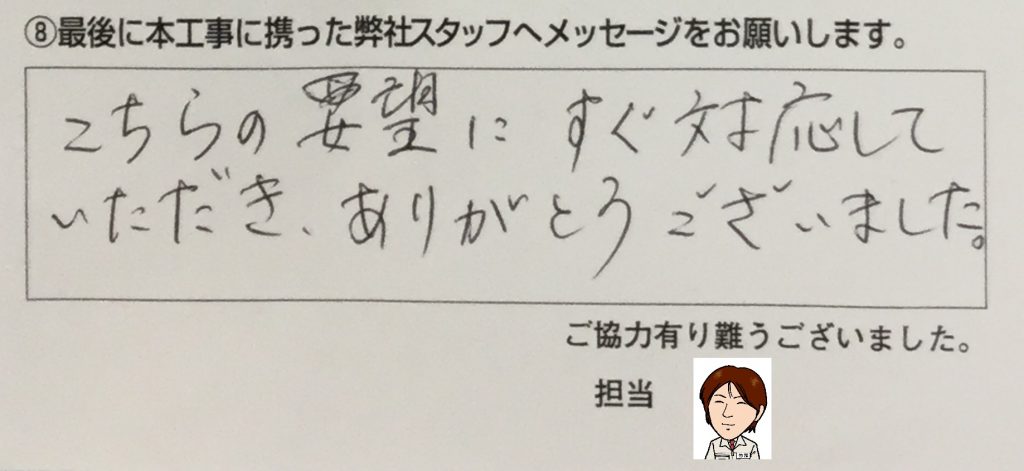 ⑧最後に本工事に携った弊社スタッフへメッセージをお願いします。
こちらの要望にすぐ対応して
いただき、ありがとうございました。
ご協力有り難うございました。
担当